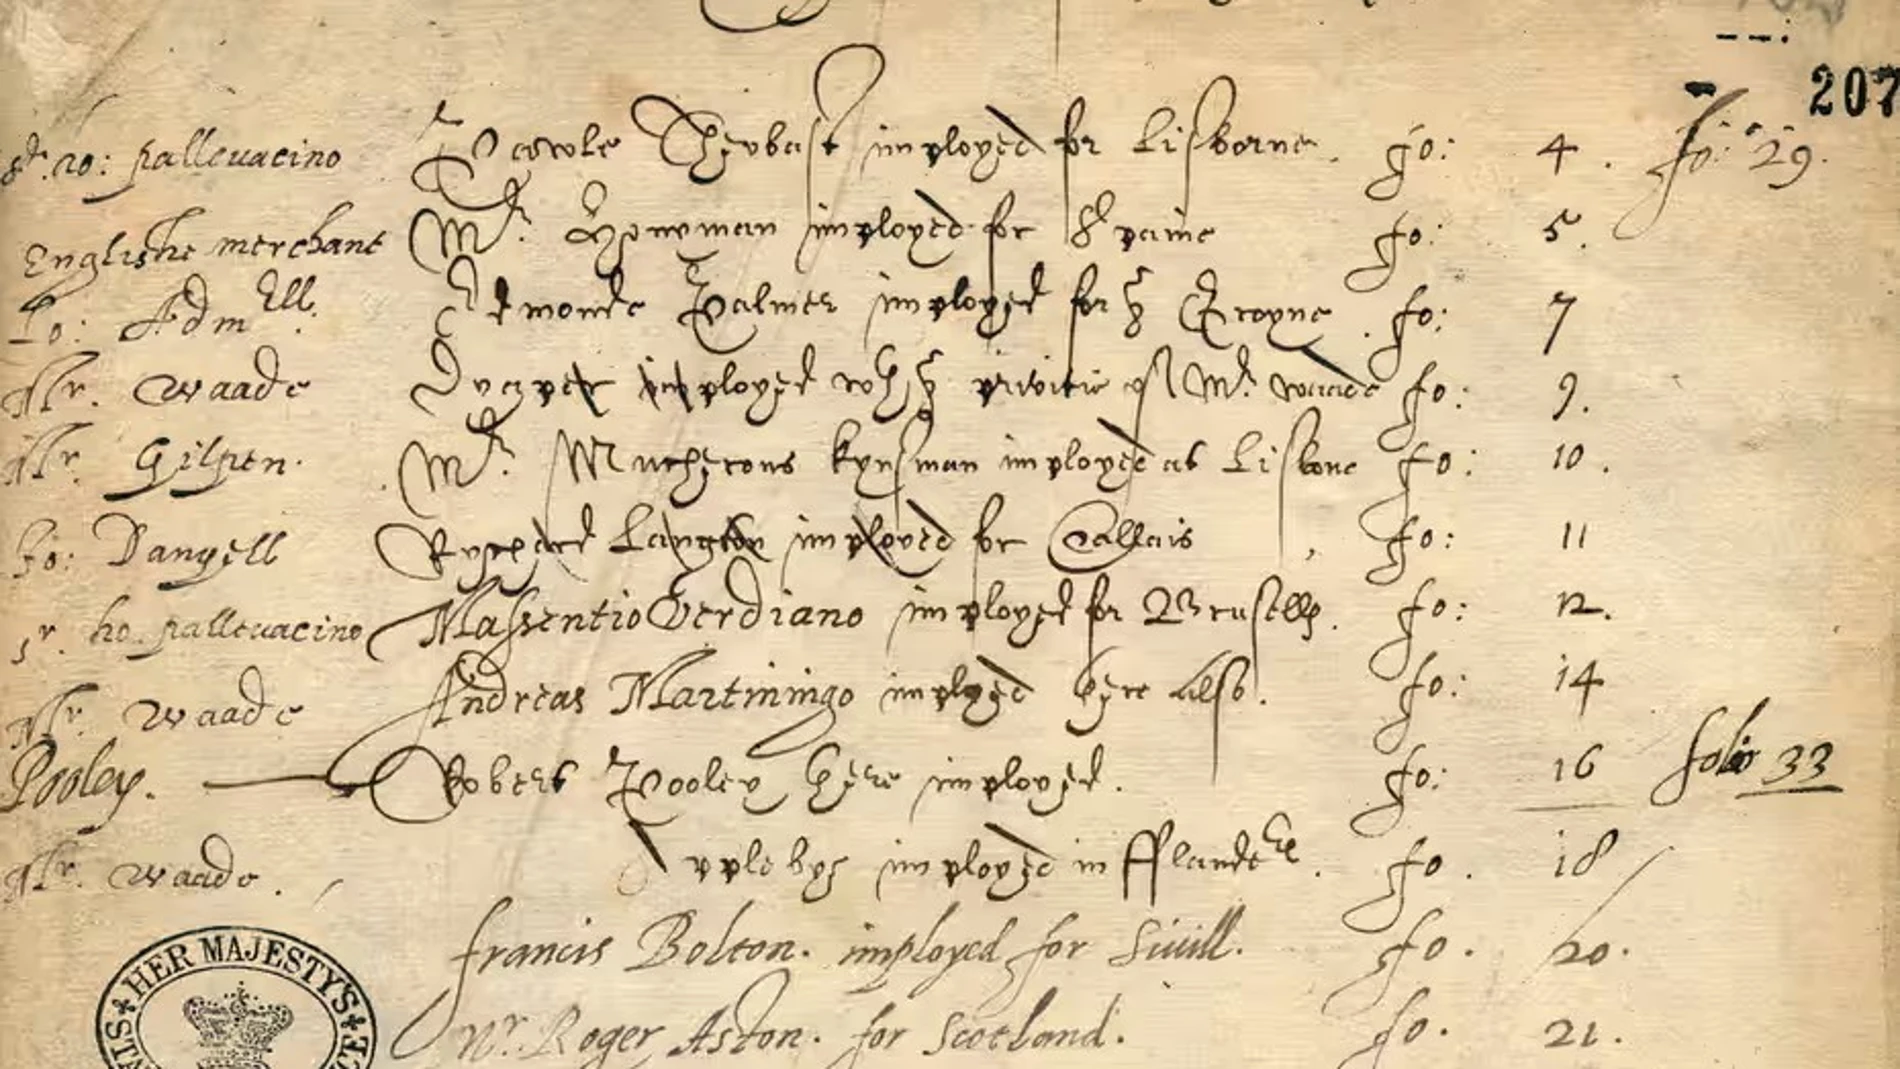 207
Sr. ho: pallevacino Pawle Theobast imployed for Lisborne. fo: 4. fo: 29.
Englishe merchant Mr. Honyman imployed for Spaine fo: 5.
Lo: Admell. Edmonde Palmer imployed for ye Groyne. fo: 7
Mr. Waade Draper imployed wth ye privitie of Mr. Waade fo: 9.
Mr. Gilpen. Mr. Mucherons kynsman imployed at Lisbone fo: 10.
Jo: Danyell Rychard Langton imployed for Callais fo: 11
Sr. ho. pallevacino Massentio Verdiano imployed for Brusells. fo: 12.
Mr. Waade Andreas Martiningo imployed here also. fo: 14
Pooley. Robert Pooley here imployed. fo: 16 folio 33
Mr. Waade. Applebye imployed in Fflanders. fo. 18
Francis Bolton. imployed for Sivill. fo. 20.
HER MAJESTY'S
Mr. Roger Aston. for Scotland. fo. 21.